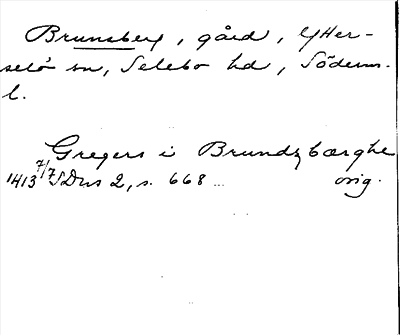 Brunsberg, gård, Ytter-
selö sn, Selebo hd, Söderm.
l.
Gregers i Brundzbærghe
1413 7/7 SDns 2, s. 668... orig.